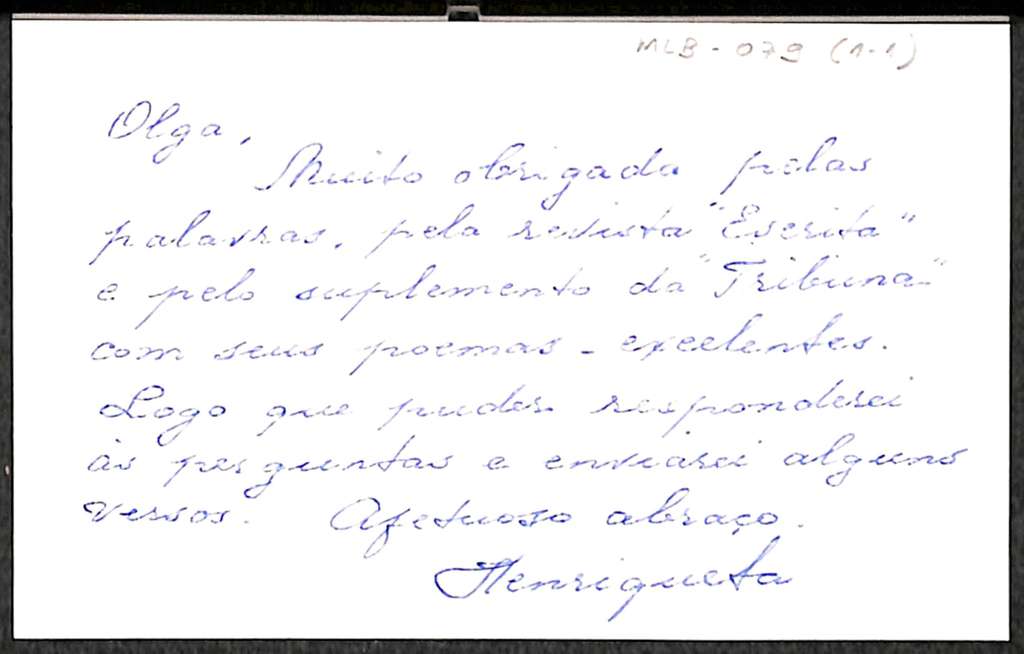 MLB-079 (1-1)
Olga,
Muito obrigada pelas
palavras, pela revista "Escrita"
e pelo suplemento da "Tribuna"
com seus poemas - excelentes.
Logo que puder responderei
às perguntas e enviarei alguns
versos. Afetuoso abraço.
Henriqueta